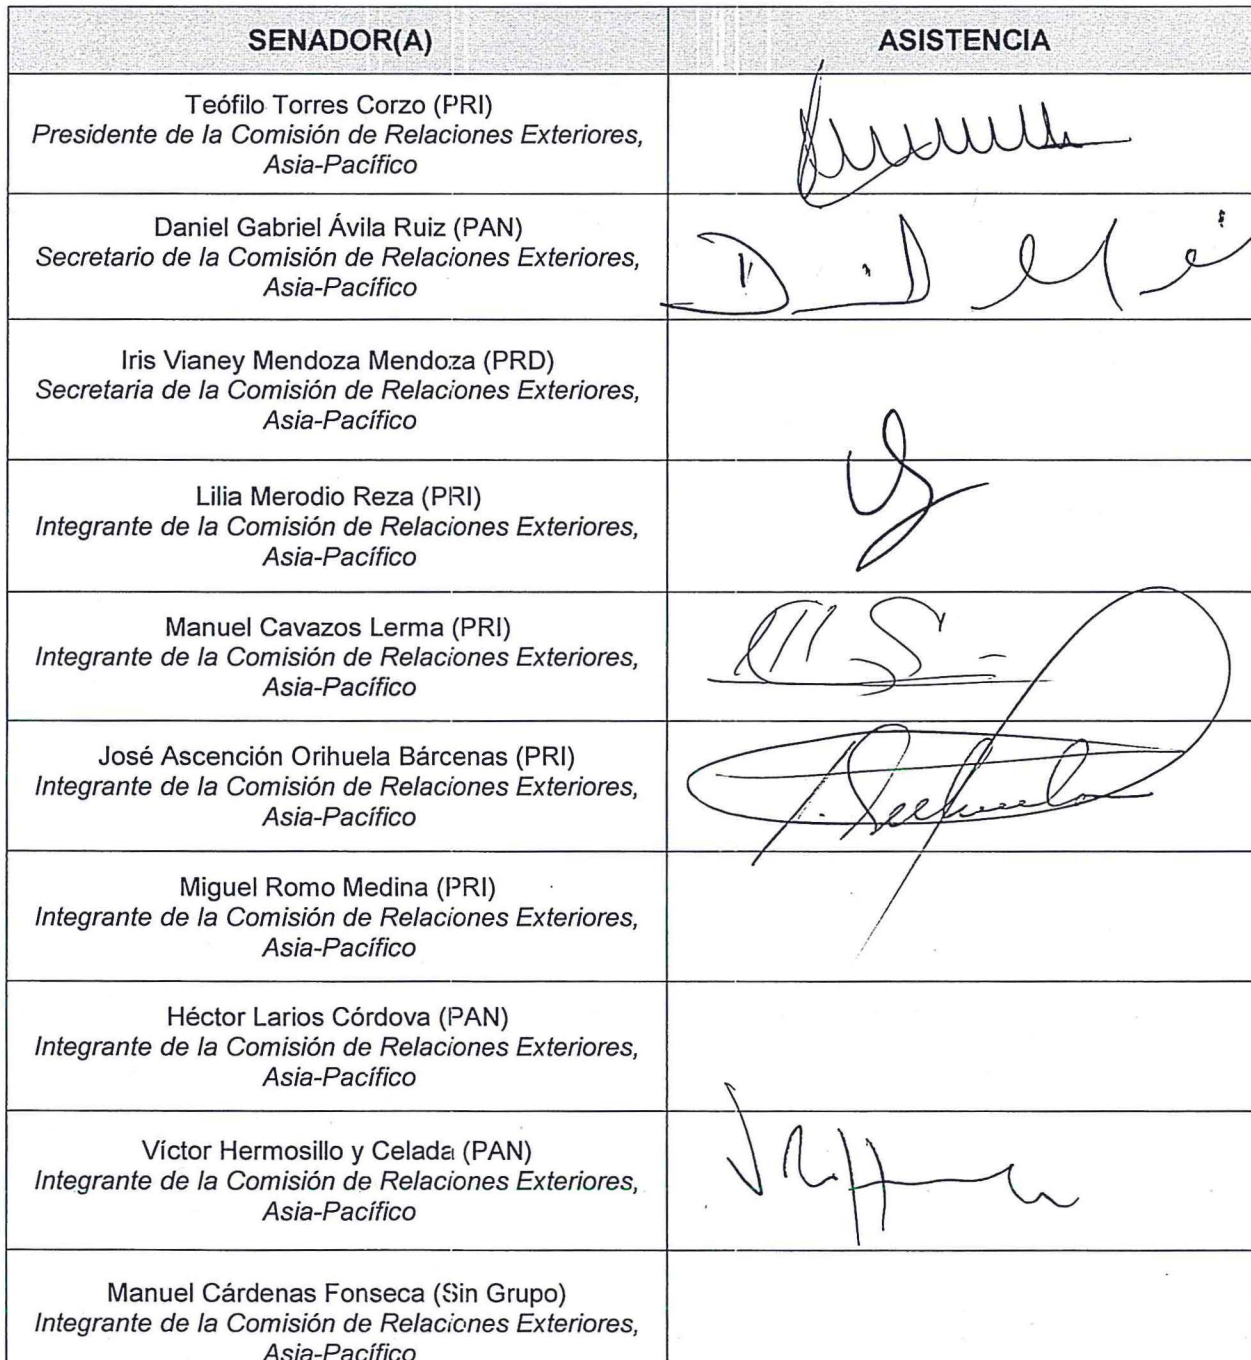 SENADOR(A)
ASISTENCIA
Teófilo Torres Corzo (PRI)
Presidente de la Comisión de Relaciones Exteriores,
Asia-Pacífico
Daniel Gabriel Ávila Ruiz (PAN)
Secretario de la Comisión de Relaciones Exteriores,
Asia-Pacífico
Iris Vianey Mendoza Mendoza (PRD)
Secretaria de la Comisión de Relaciones Exteriores,
Asia-Pacífico
Lilia Merodio Reza (PRI)
Integrante de la Comisión de Relaciones Exteriores,
Asia-Pacífico
Manuel Cavazos Lerma (PRI)
Integrante de la Comisión de Relaciones Exteriores,
Asia-Pacífico
José Ascención Orihuela Bárcenas (PRI)
Integrante de la Comisión de Relaciones Exteriores,
Asia-Pacífico
Miguel Romo Medina (PRI)
Integrante de la Comisión de Relaciones Exteriores,
Asia-Pacífico
Héctor Larios Córdova (PAN)
Integrante de la Comisión de Relaciones Exteriores,
Asia-Pacífico
Víctor Hermosillo y Celada (PAN)
Integrante de la Comisión de Relaciones Exteriores,
Asia-Pacífico
Manuel Cárdenas Fonseca (Sin Grupo)
Integrante de la Comisión de Relaciones Exteriores,
Asia-Pacífico